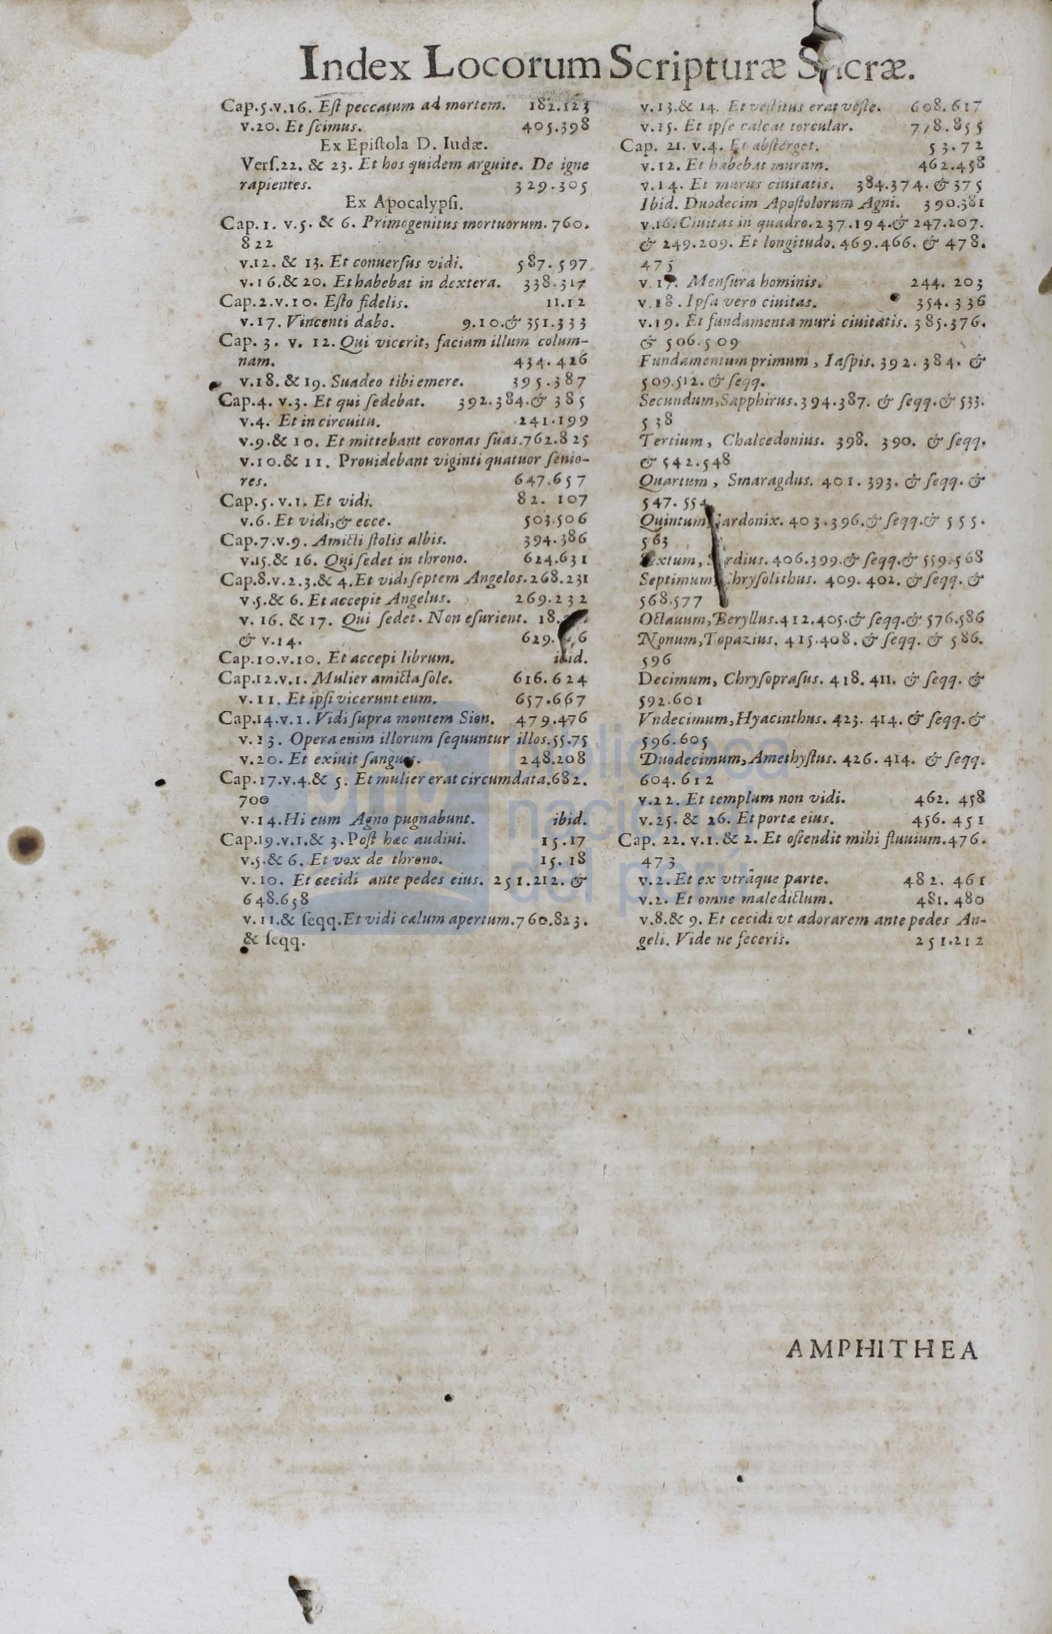 Index Locorum Scripturæ Sacræ.
Cap.5.v.16. Eſt peccatum ad mortem. 182.123
v.20. Et ſcimus. 405.398
Ex Epiſtola D. Iudæ.
Verſ.22. & 23. Et hos quidem arguite. De igne
rapientes. 329.305
Ex Apocalypſi.
Cap.1. v.5. & 6. Primogenitus mortuorum. 760.
822
v.12. & 13. Et conuerſus vidi. 587.597
v.16.& 20. Et habebat in dextera. 338.317
Cap.2.v.10. Eſto fidelis. 11.12
v.17. Vincenti dabo. 9.10.& 351.333
Cap. 3. v. 12. Qui vicerit, faciam illum colum-
nam. 434.426
v.18. & 19. Suadeo tibi emere. 395.387
Cap.4. v.3. Et qui ſedebat. 392.384.& 385
v.4. Et in circuitu. 241.199
v.9.& 10. Et mittebant coronas ſuas.762.825
v.10.& 11. Prouidebant viginti quatuor ſenio-
res. 647.657
Cap.5.v.1. Et vidi. 82. 107
v.6. Et vidi,& ecce. 503.506
Cap.7.v.9. Amicti ſtolis albis. 394.386
v.15.& 16. Qui ſedet in throno. 624.631
Cap.8.v.2.3.& 4.Et vidi ſeptem Angelos.268.231
v.5.& 6. Et accepit Angelus. 269.232
v. 16. & 17. Qui ſedet. Non eſurient. 18.
& v.14. 629.
Cap.10.v.10. Et accepi librum. ibid.
Cap.12.v.1. Mulier amicta ſole. 616.624
v.11. Et ipſi vicerunt eum. 657.667
Cap.14.v.1. Vidi ſupra montem Sion. 479.476
v.13. Opera enim illorum ſequuntur illos.55.75
v.20. Et exiuit ſanguis. 248.208
Cap.17.v.4.& 5. Et mulier erat circumdata.682.
700
v.14.Hi cum Agno pugnabunt. ibid.
Cap.19.v.1.& 3.Poſt hæc audiui. 15.17
v.5.& 6. Et vox de throno. 15. 18
v.10. Et cecidi ante pedes eius. 251.212. &
648.658
v.11.& ſeqq.Et vidi cælum apertum.760.823.
& ſeqq.
v.13.& 14. Et veſtitus erat veſte. 608.617
v.15. Et ipſe calcat torcular. 778.855
Cap. 21. v.4. Et abſterget. 53.72
v.12. Et habebat muram. 462.458
v.14. Et murus ciuitatis. 384.374.& 375
Ibid. Duodecim Apoſtolorum Agni. 390.381
v.16.Ciuitas in quadro.237.194.& 247.207.
& 249.209. Et longitudo.469.466. & 478.
475
v.17. Menſura hominis. 244. 203
v.18. Ipſa vero ciuitas. 354.336
v.19. Et fundamenta muri ciuitatis.385.376.
& 506.509
Fundamentum primum, Iaſpis.392.384. &
509.512.& ſeqq.
Secundum,Sapphirus.394.387. & ſeqq.& 533.
538
Tertium, Chalcedonius. 398. 390. & ſeqq.
& 542.548
Quartum, Smaragdus. 401. 393. & ſeqq. &
547.554
Quintum, Sardonix.403.396.& ſeqq.& 555.
563
Sextum, Sardius.406.399.& ſeqq.& 559.568
Septimum, Chryſolithus. 409. 402. & ſeqq. &
568.577
Octauum,Beryllus.412.405.& ſeqq.& 576.586
Nonum,Topazius. 415.408.& ſeqq. & 586.
596
Decimum, Chryſopraſus. 418. 411. & ſeqq. &
592.601
Vndecimum,Hyacinthus. 423. 414.& ſeqq.&
596.605
Duodecimum, Amethyſtus. 426. 414. & ſeqq.
604.612
v.22. Et templum non vidi. 462. 458
v.25. & 26. Et portæ eius. 456. 451
Cap. 22. v.1.& 2. Et oſtendit mihi fluuium.476.
473
v.2. Et ex vtrâque parte. 482. 461
v.2. Et omne maledictum. 481. 480
v.8.& 9. Et cecidi vt adorarem ante pedes An-
geli. Vide ne feceris. 251.212
AMPHITHEA
bnp
biblioteca
nacional
del perú